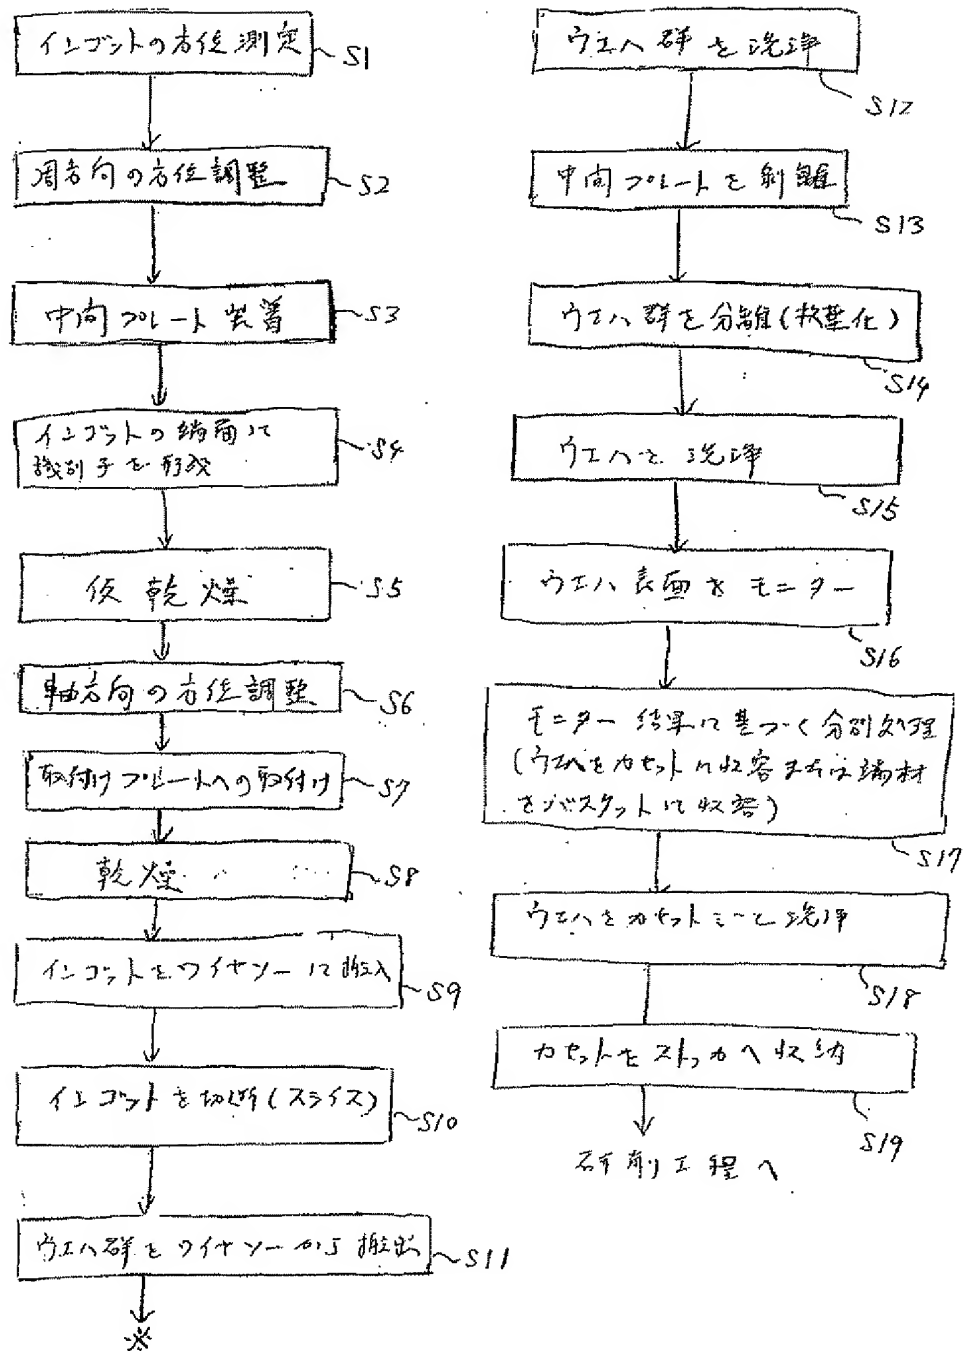 インゴットの方位測定
S1
周方向の方位調整
S2
中間プレート装着
S3
インゴットの端面に
識別子を形成
S4
仮乾燥
S5
軸方向の方位調整
S6
取付けプレートへの取付け
S7
乾燥
S8
インゴットをワイヤソーに搬入
S9
インゴットを切断(スライス)
S10
ウエハ群をワイヤソーから搬出
S11
※
ウエハ群を洗浄
S12
中間プレートを剥離
S13
ウエハ群を分離(枚葉化)
S14
ウエハを洗浄
S15
ウエハ表面をモニター
S16
モニター結果に基づく分別処理
(ウエハをカセットに収容または端材
をバスケットに収容)
S17
ウエハをカセットごと洗浄
S18
カセットをストッカへ収納
S19
研削工程へ